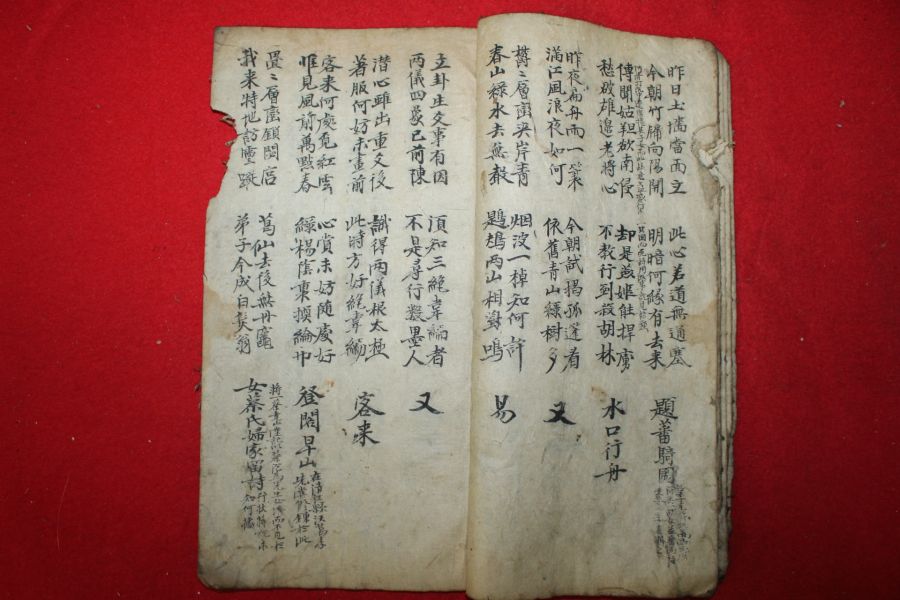 昨日土墻當面立
今朝竹牖向陽開
此心若道無通塞
明暗何緣有去來
題蕃騎圖
傳聞姑靼欲南侵
愁破雄邊老將心
却是燕姬能捍虜
不教行到殺胡林
水口行舟
昨夜扁舟雨一簑
滿江風浪夜如何
今朝試揭孤篷看
依舊青山綠樹多
又
欝〻層巒夾岸青
春山綠水去無聲
烟波一棹知何許
鶗鴂兩山相對鳴
易
立卦生爻事有因
兩儀四象已前陳
須知三絶韋編者
不是尋行數墨人
又
潜心雖出重爻後
著服何妨未畫前
識得兩儀根太極
此時方好絶韋編
客來
客來何處覔紅雲
惟見風前萬點春
心賞未妨隨處好
綠楊陰裏頻綸巾
登閤早山
疊〻層巒鎖閟宮
我來特地訪靈蹤
葛仙去後無丹竈
弟子今成白髮翁
女蔡氏婦家留詩